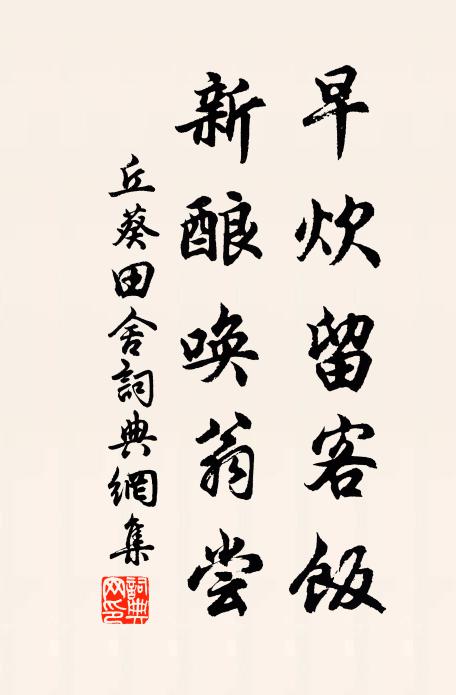 早炊留客飯
新酿唤翁尝
丘葵田舍詞典網集
詞典
网印